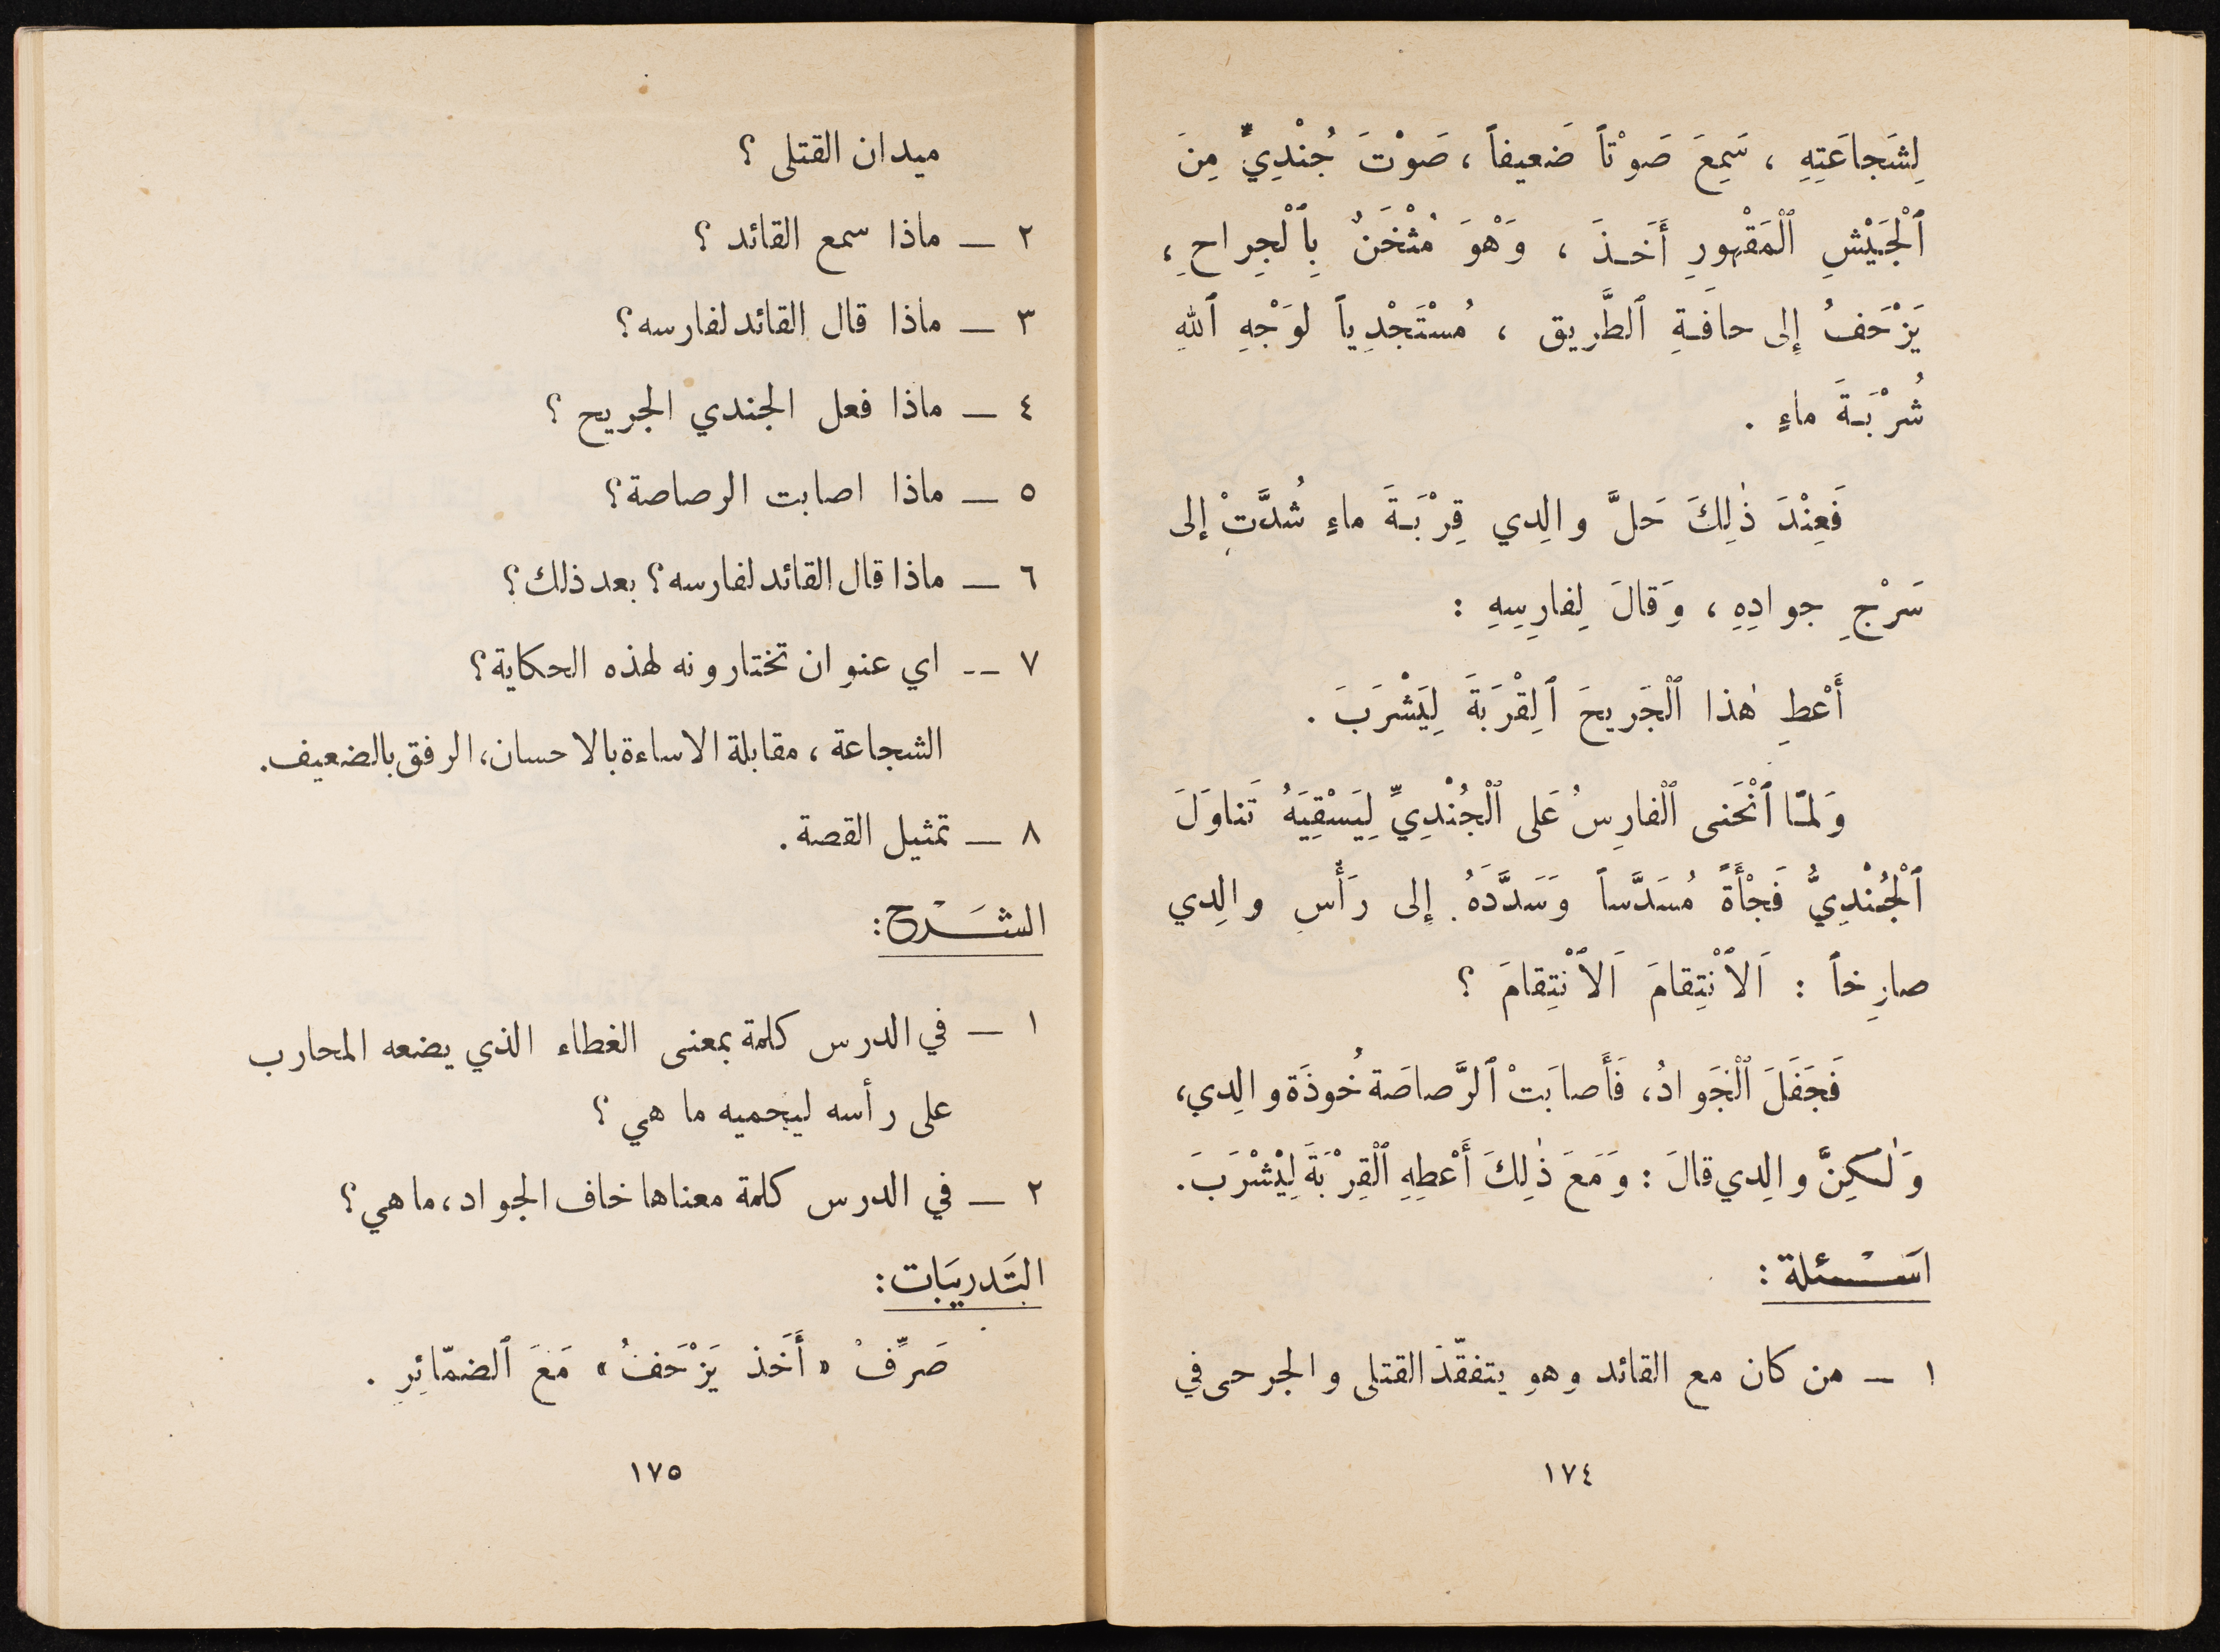 لِشَجاعَتِهِ ، سَمِعَ صَوْتاً ضَعيفاً ، صَوْتَ جُنْدِيٍّ مِنَ
ٱلْجَيْشِ ٱلْمَقْهورِ أَخَـذَ ، وَهْوَ مُثْخَنٌ بِٱلْجِراحِ ،
يَزْحَفُ إِلى حافَـةِ ٱلطَّرِيق ، مُسْتَجْدِياً لوَجْهِ ٱللهِ
شُرْبَـةَ ماءٍ .
فَعِنْدَ ذٰلِكَ حَلَّ والِدي قِرْبَـةَ ماءٍ شُدَّتْ إلى
سَرْجِ جوادِهِ ، وَقالَ لِفارِسِهِ :
أَعْطِ هٰذا ٱلْجَريحَ ٱلِقْرَبَةَ لِيَشْرَبَ .
وَلمّـا ٱنْحَنى ٱلْفارِسُ عَلى ٱلْجُنْدِيِّ لِيَسْقِيَهُ تَناوَلَ
ٱلْجُنْدِيُّ فَجْأَةً مُسَدَّساً وَسَدَّدَهُ إِلى رَأْسِ والِدي
صارِخاً : اَلاَنْتِقامَ اَلاَنْتِقامَ ؟
فَجَفَلَ ٱلْجَوادُ ، فَأَصابَتْ ٱلرَّصاصَة خُوذَة والِدي ،
وَلٰكِنَّ والِدي قالَ : وَمَعَ ذٰلِكَ أَعْطِهِ ٱلْقِرْبَةَ لِيْشْرَبَ .
اَسْـئلة :
١ – من كان مع القائد وهو يتفقّد القتلى والجرحى في
١٧٤
ميدان القتلى ؟
٢ – ماذا سمع القائد ؟
٣ – ماذا قال القائد لفارسه ؟
٤ – ماذا فعل الجندي الجريح ؟
٥ – ماذا اصابت الرصاصة ؟
٦ – ماذا قال القائد لفارسه ؟ بعد ذلك ؟
٧ -- اي عنوان تختارونه لهذه الحكاية ؟
الشجاعة ، مقابلة الاساءة بالاحسان ، الرفق بالضعيف .
٨ – تمثيل القصة .
الشَـرْح :
١ – في الدرس كلمة بمعنى الغطاء الذي يضعه المحارب
على رأسه ليحميه ما هي ؟
٢ – في الدرس كلمة معناها خاف الجواد ، ما هي ؟
التَدريَبات :
صَرِّفْ « أَخَذ يَزْحَفُ » مَعَ ٱلضمّائِرِ .
١٧٥